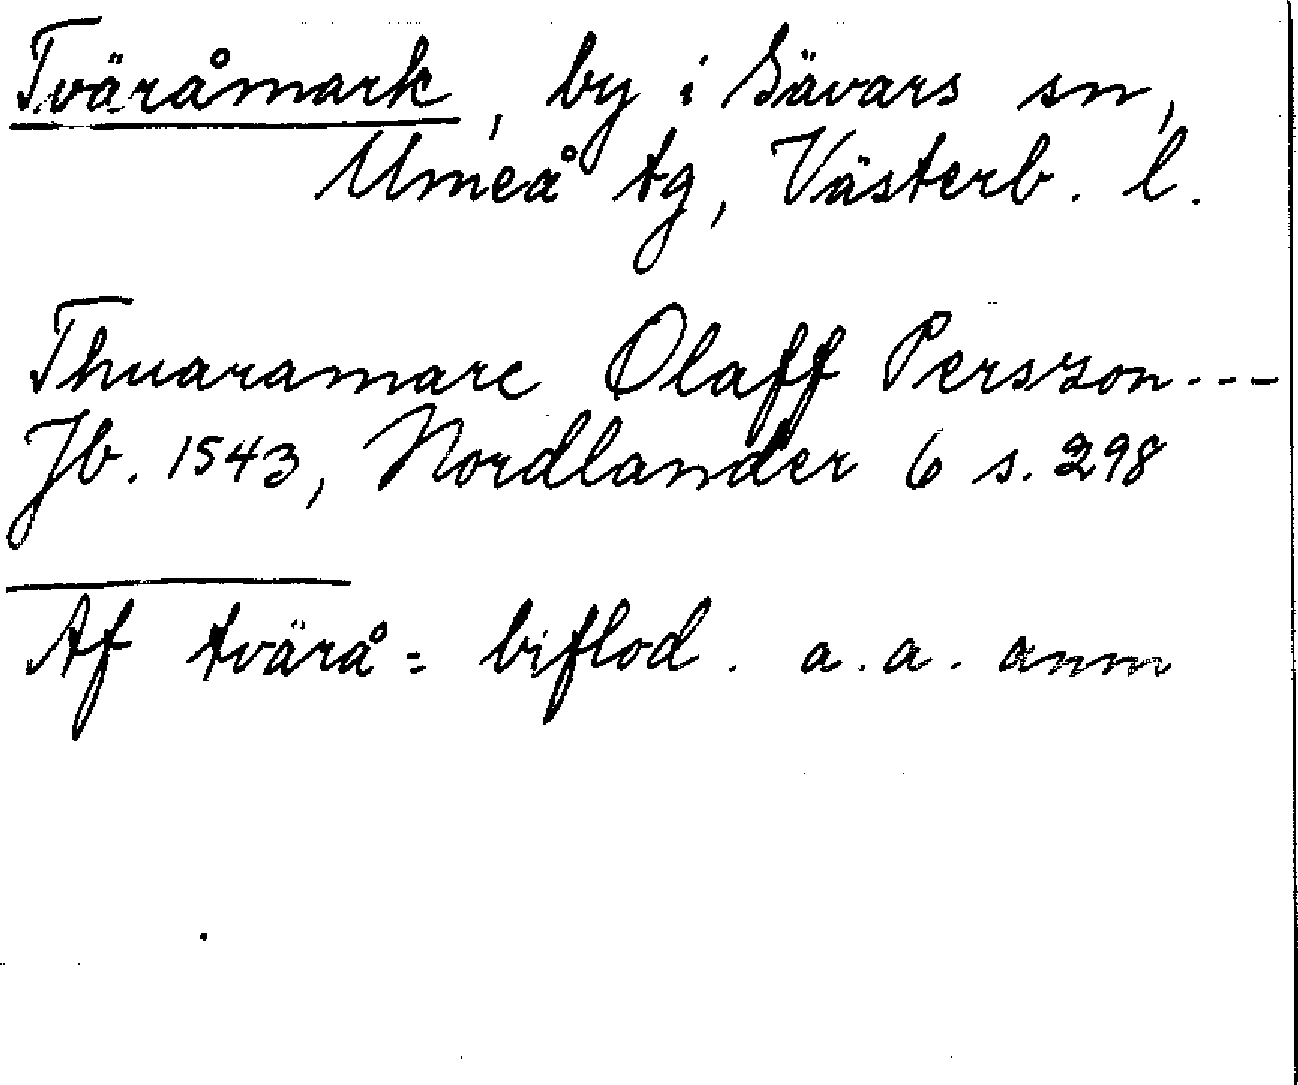 Tväråmark, by i Sävars sn,
Umeå tg, Västerb. l.
Thuaramarc Olaff Persson ---
Jb. 1543, Nordlander 6 s. 298
Af tvärå = biflod. a. a. anm